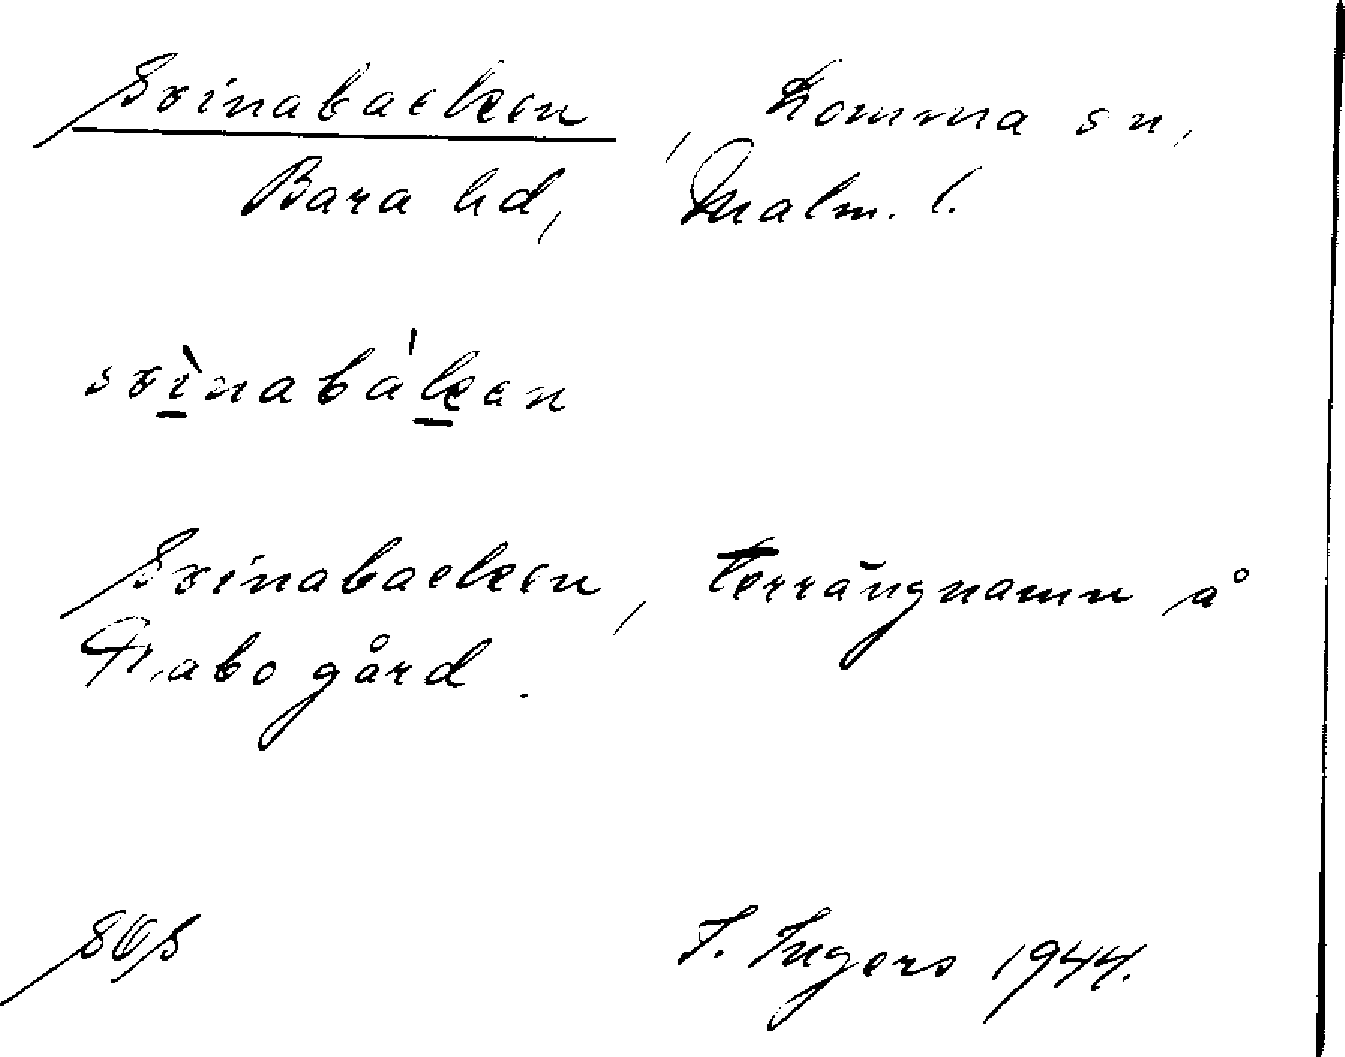 Svinabacken, Lomma sn,
Bara hd, Malm. l.
svìnabáken
Svinabacken, terrängnamn å
abo gård.
SOS I. Ingers 1944.